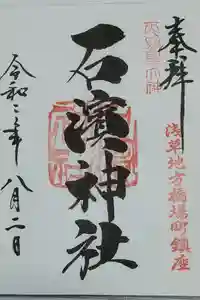 奉拝
浅草地方橋場町鎮座
石濱神社
令和二年八月二日